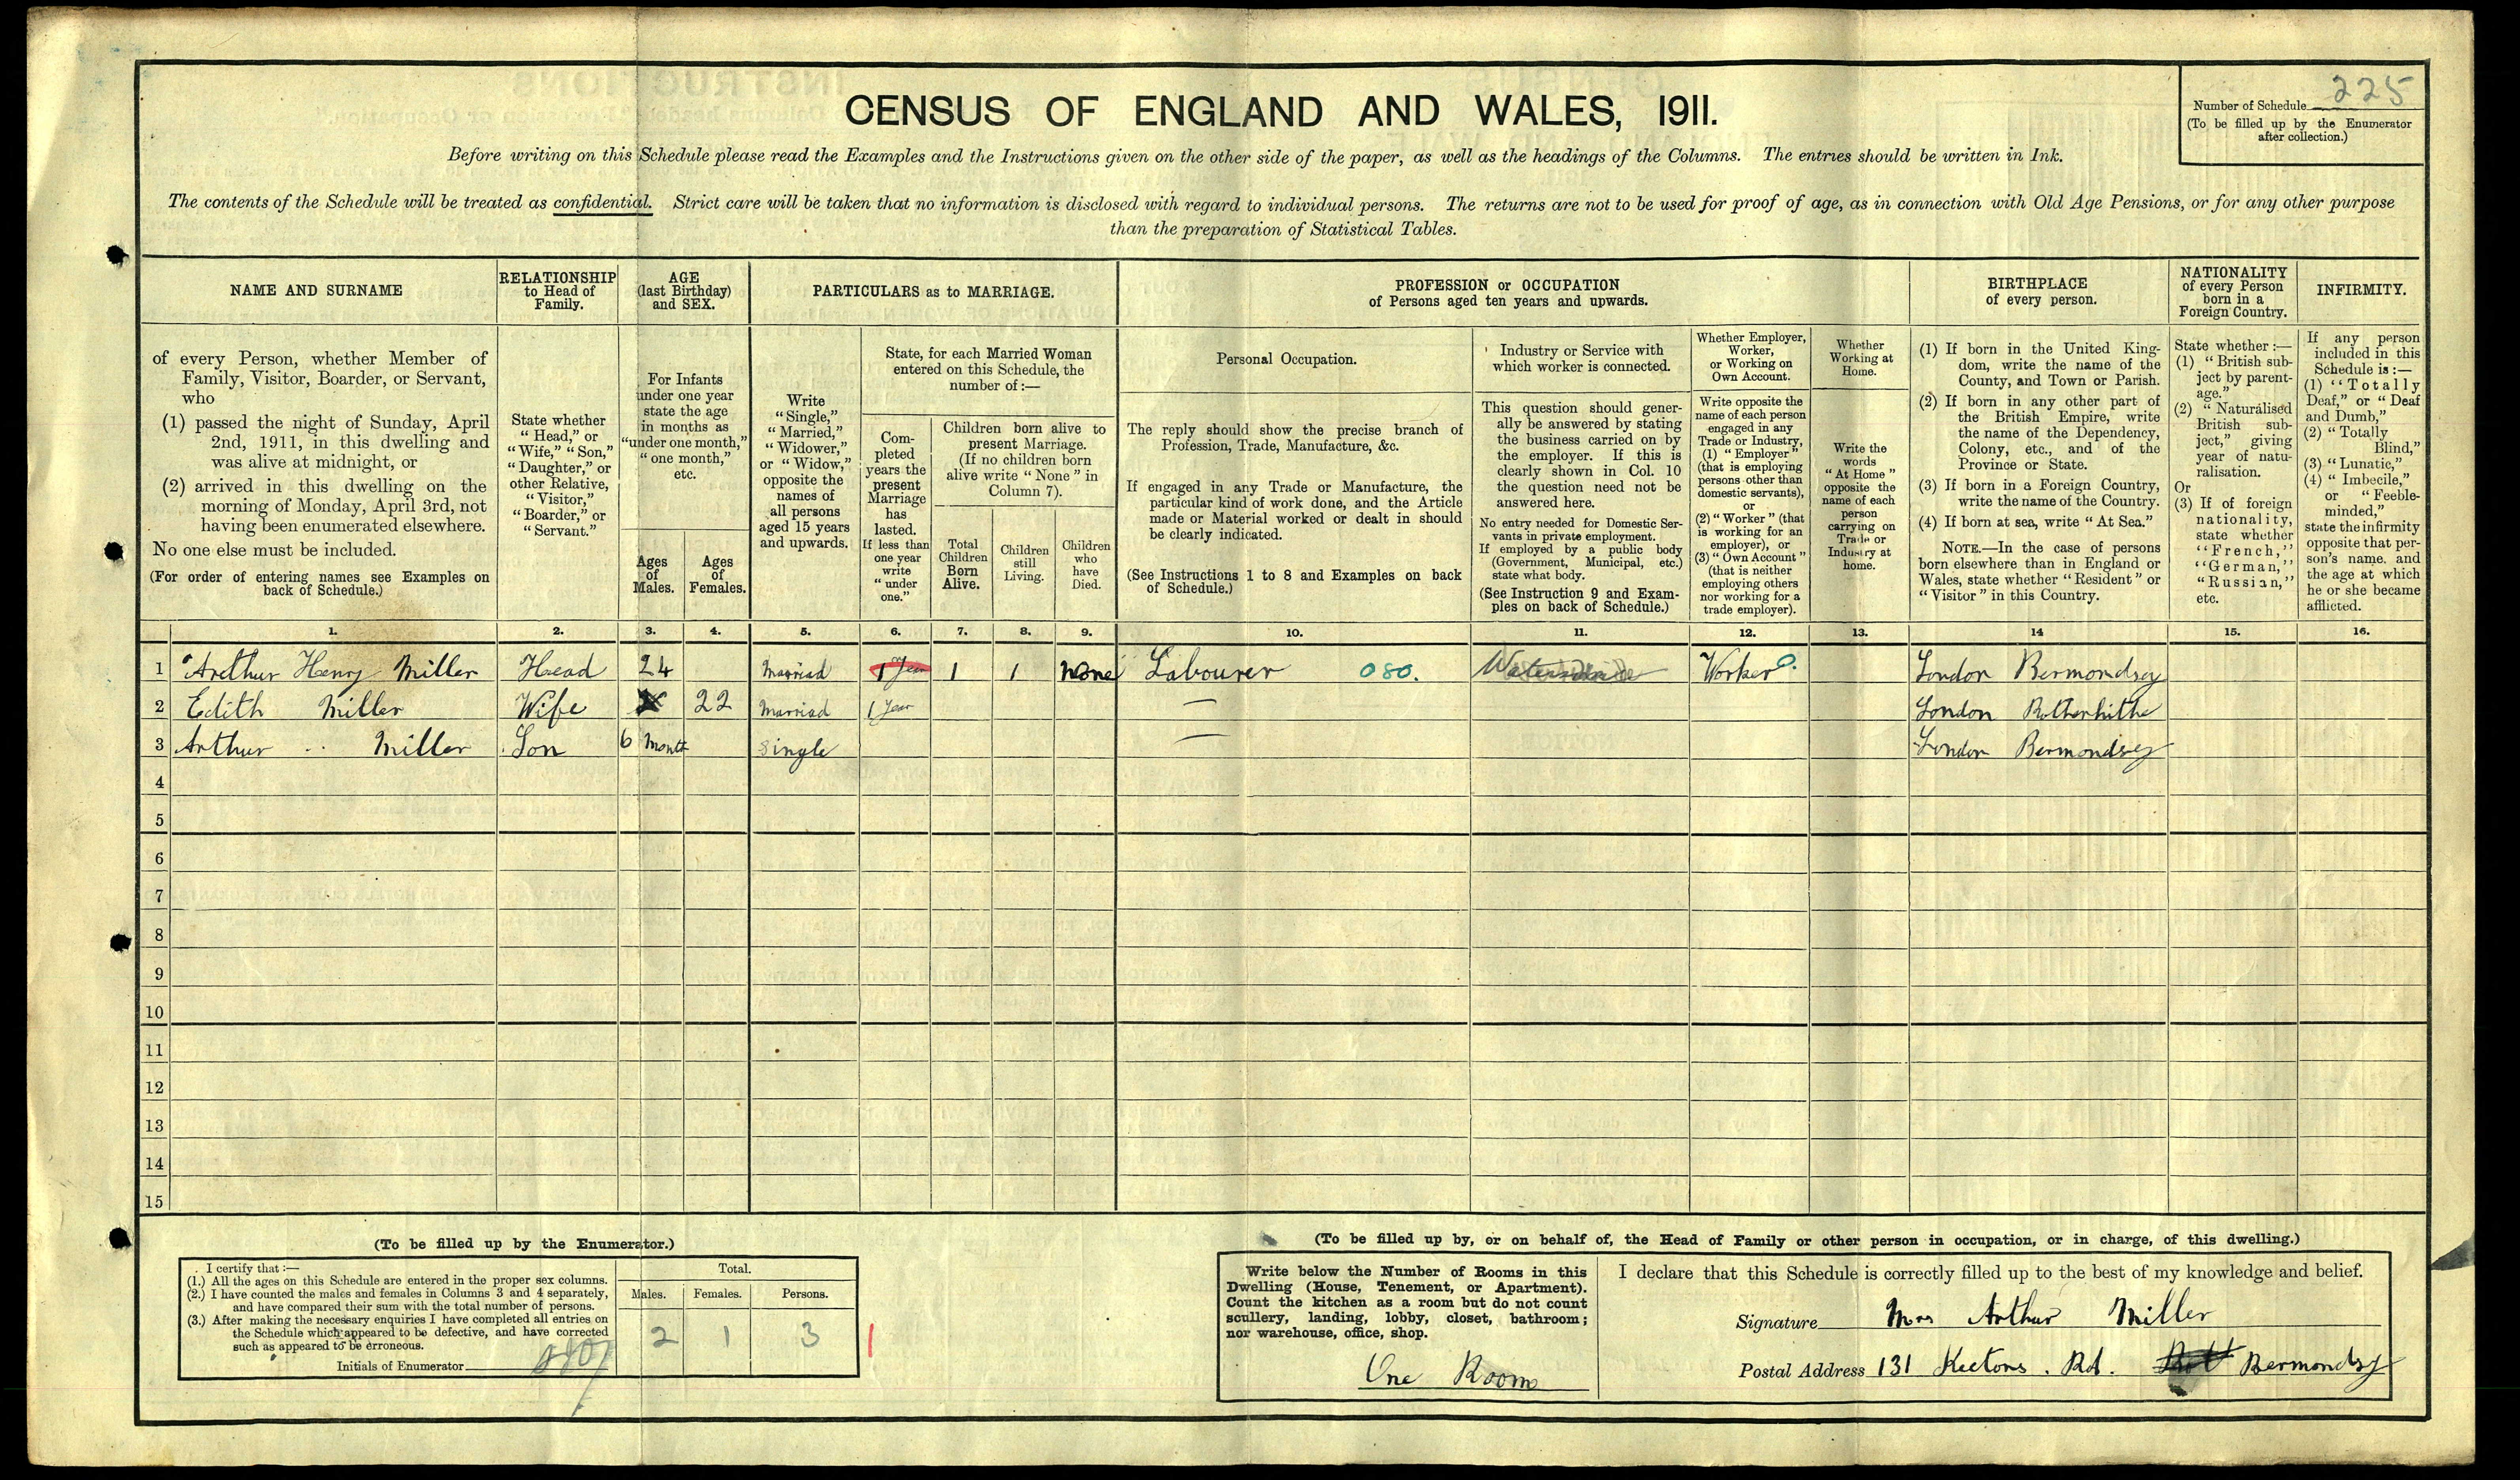 CENSUS OF ENGLAND AND WALES, 1911.
Number of Schedule 225
(To be filled up by the Enumerator
after collection.)
Before writing on this Schedule please read the Examples and the Instructions given on the other side of the paper, as well as the headings of the Columns. The entries should be written in Ink.
The contents of the Schedule will be treated as confidential. Strict care will be taken that no information is disclosed with regard to individual persons. The returns are not to be used for proof of age, as in connection with Old Age Pensions, or for any other purpose
than the preparation of Statistical Tables.
NAME AND SURNAME
of every Person, whether Member of
Family, Visitor, Boarder, or Servant,
who
(1) passed the night of Sunday, April
2nd, 1911, in this dwelling and
was alive at midnight, or
(2) arrived in this dwelling on the
morning of Monday, April 3rd, not
having been enumerated elsewhere.
No one else must be included.
(For order of entering names see Examples on
back of Schedule.)
RELATIONSHIP
to Head of
Family.
State whether
"Head," or
"Wife," "Son,"
"Daughter," or
other Relative,
"Visitor,"
"Boarder," or
"Servant."
AGE
(last Birthday)
and SEX.
For Infants
under one year
state the age
in months as
"under one month,"
"one month,"
etc.
Ages
of
Males.
Ages
of
Females.
PARTICULARS as to MARRIAGE.
Write
"Single,"
"Married,"
"Widower,"
or "Widow,"
opposite the
names of
all persons
aged 15 years
and upwards.
State, for each Married Woman
entered on this Schedule, the
number of:—
Com-
pleted
years the
present
Marriage
has
lasted.
If less than
one year
write
"under
one."
Children born alive to
present Marriage.
(If no children born
alive write "None" in
Column 7).
Total
Children
Born
Alive.
Children
still
Living.
Children
who
have
Died.
PROFESSION or OCCUPATION
of Persons aged ten years and upwards.
Personal Occupation.
The reply should show the precise branch of
Profession, Trade, Manufacture, &c.
If engaged in any Trade or Manufacture, the
particular kind of work done, and the Article
made or Material worked or dealt in should
be clearly indicated.
(See Instructions 1 to 8 and Examples on back
of Schedule.)
Industry or Service with
which worker is connected.
This question should gener-
ally be answered by stating
the business carried on by
the employer. If this is
clearly shown in Col. 10
the question need not be
answered here.
No entry needed for Domestic Ser-
vants in private employment.
If employed by a public body
(Government, Municipal, etc.)
state what body.
(See Instruction 9 and Exam-
ples on back of Schedule.)
Whether Employer,
Worker,
or Working on
Own Account.
Write opposite the
name of each person
engaged in any
Trade or Industry,
(1) "Employer"
(that is employing
persons other than
domestic servants),
or
(2) "Worker" (that
is working for an
employer), or
(3) "Own Account"
(that is neither
employing others
nor working for a
trade employer).
Whether
Working at
Home.
Write the
words
"At Home"
opposite the
name of each
person
carrying on
Trade or
Industry at
home.
BIRTHPLACE
of every person.
(1) If born in the United King-
dom, write the name of the
County, and Town or Parish.
(2) If born in any other part of
the British Empire, write
the name of the Dependency,
Colony, etc., and of the
Province or State.
(3) If born in a Foreign Country,
write the name of the Country.
(4) If born at sea, write "At Sea."
NOTE.—In the case of persons
born elsewhere than in England or
Wales, state whether "Resident" or
"Visitor" in this Country.
NATIONALITY
of every Person
born in a
Foreign Country.
State whether:—
(1) "British sub-
ject by parent-
age."
(2) "Naturalised
British sub-
ject," giving
year of natu-
ralisation.
Or
(3) If of foreign
nationality,
state whether
"French,"
"German,"
"Russian,"
etc.
INFIRMITY.
If any person
included in this
Schedule is:—
(1) "Totally
Deaf," or "Deaf
and Dumb,"
(2) "Totally
Blind,"
(3) "Lunatic,"
(4) "Imbecile,"
or "Feeble-
minded,"
state the infirmity
opposite that per-
son's name, and
the age at which
he or she became
afflicted.
1. 2. 3. 4. 5. 6. 7. 8. 9. 10. 11. 12. 13. 14 15. 16.
1 Arthur Henry Miller Head 24 Married 1 Year 1 1 None Labourer 080. Waterside Worker 0. London Bermondsey
2 Edith Miller Wife 22 Married 1 Year — London Rotherhithe
3 Arthur " Miller Son 6 Month Single — London Bermondsey
4
5
6
7
8
9
10
11
12
13
14
15
(To be filled up by the Enumerator.)
I certify that:—
(1.) All the ages on this Schedule are entered in the proper sex columns.
(2.) I have counted the males and females in Columns 3 and 4 separately,
and have compared their sum with the total number of persons.
(3.) After making the necessary enquiries I have completed all entries on
the Schedule which appeared to be defective, and have corrected
such as appeared to be erroneous.
Initials of Enumerator
Total.
Males. Females. Persons.
2 1 3
(To be filled up by, or on behalf of, the Head of Family or other person in occupation, or in charge, of this dwelling.)
Write below the Number of Rooms in this
Dwelling (House, Tenement, or Apartment).
Count the kitchen as a room but do not count
scullery, landing, lobby, closet, bathroom;
nor warehouse, office, shop.
One Room
I declare that this Schedule is correctly filled up to the best of my knowledge and belief.
Signature Mrs Arthur Miller
Postal Address 131 Keetons. Rd. Bermondsy